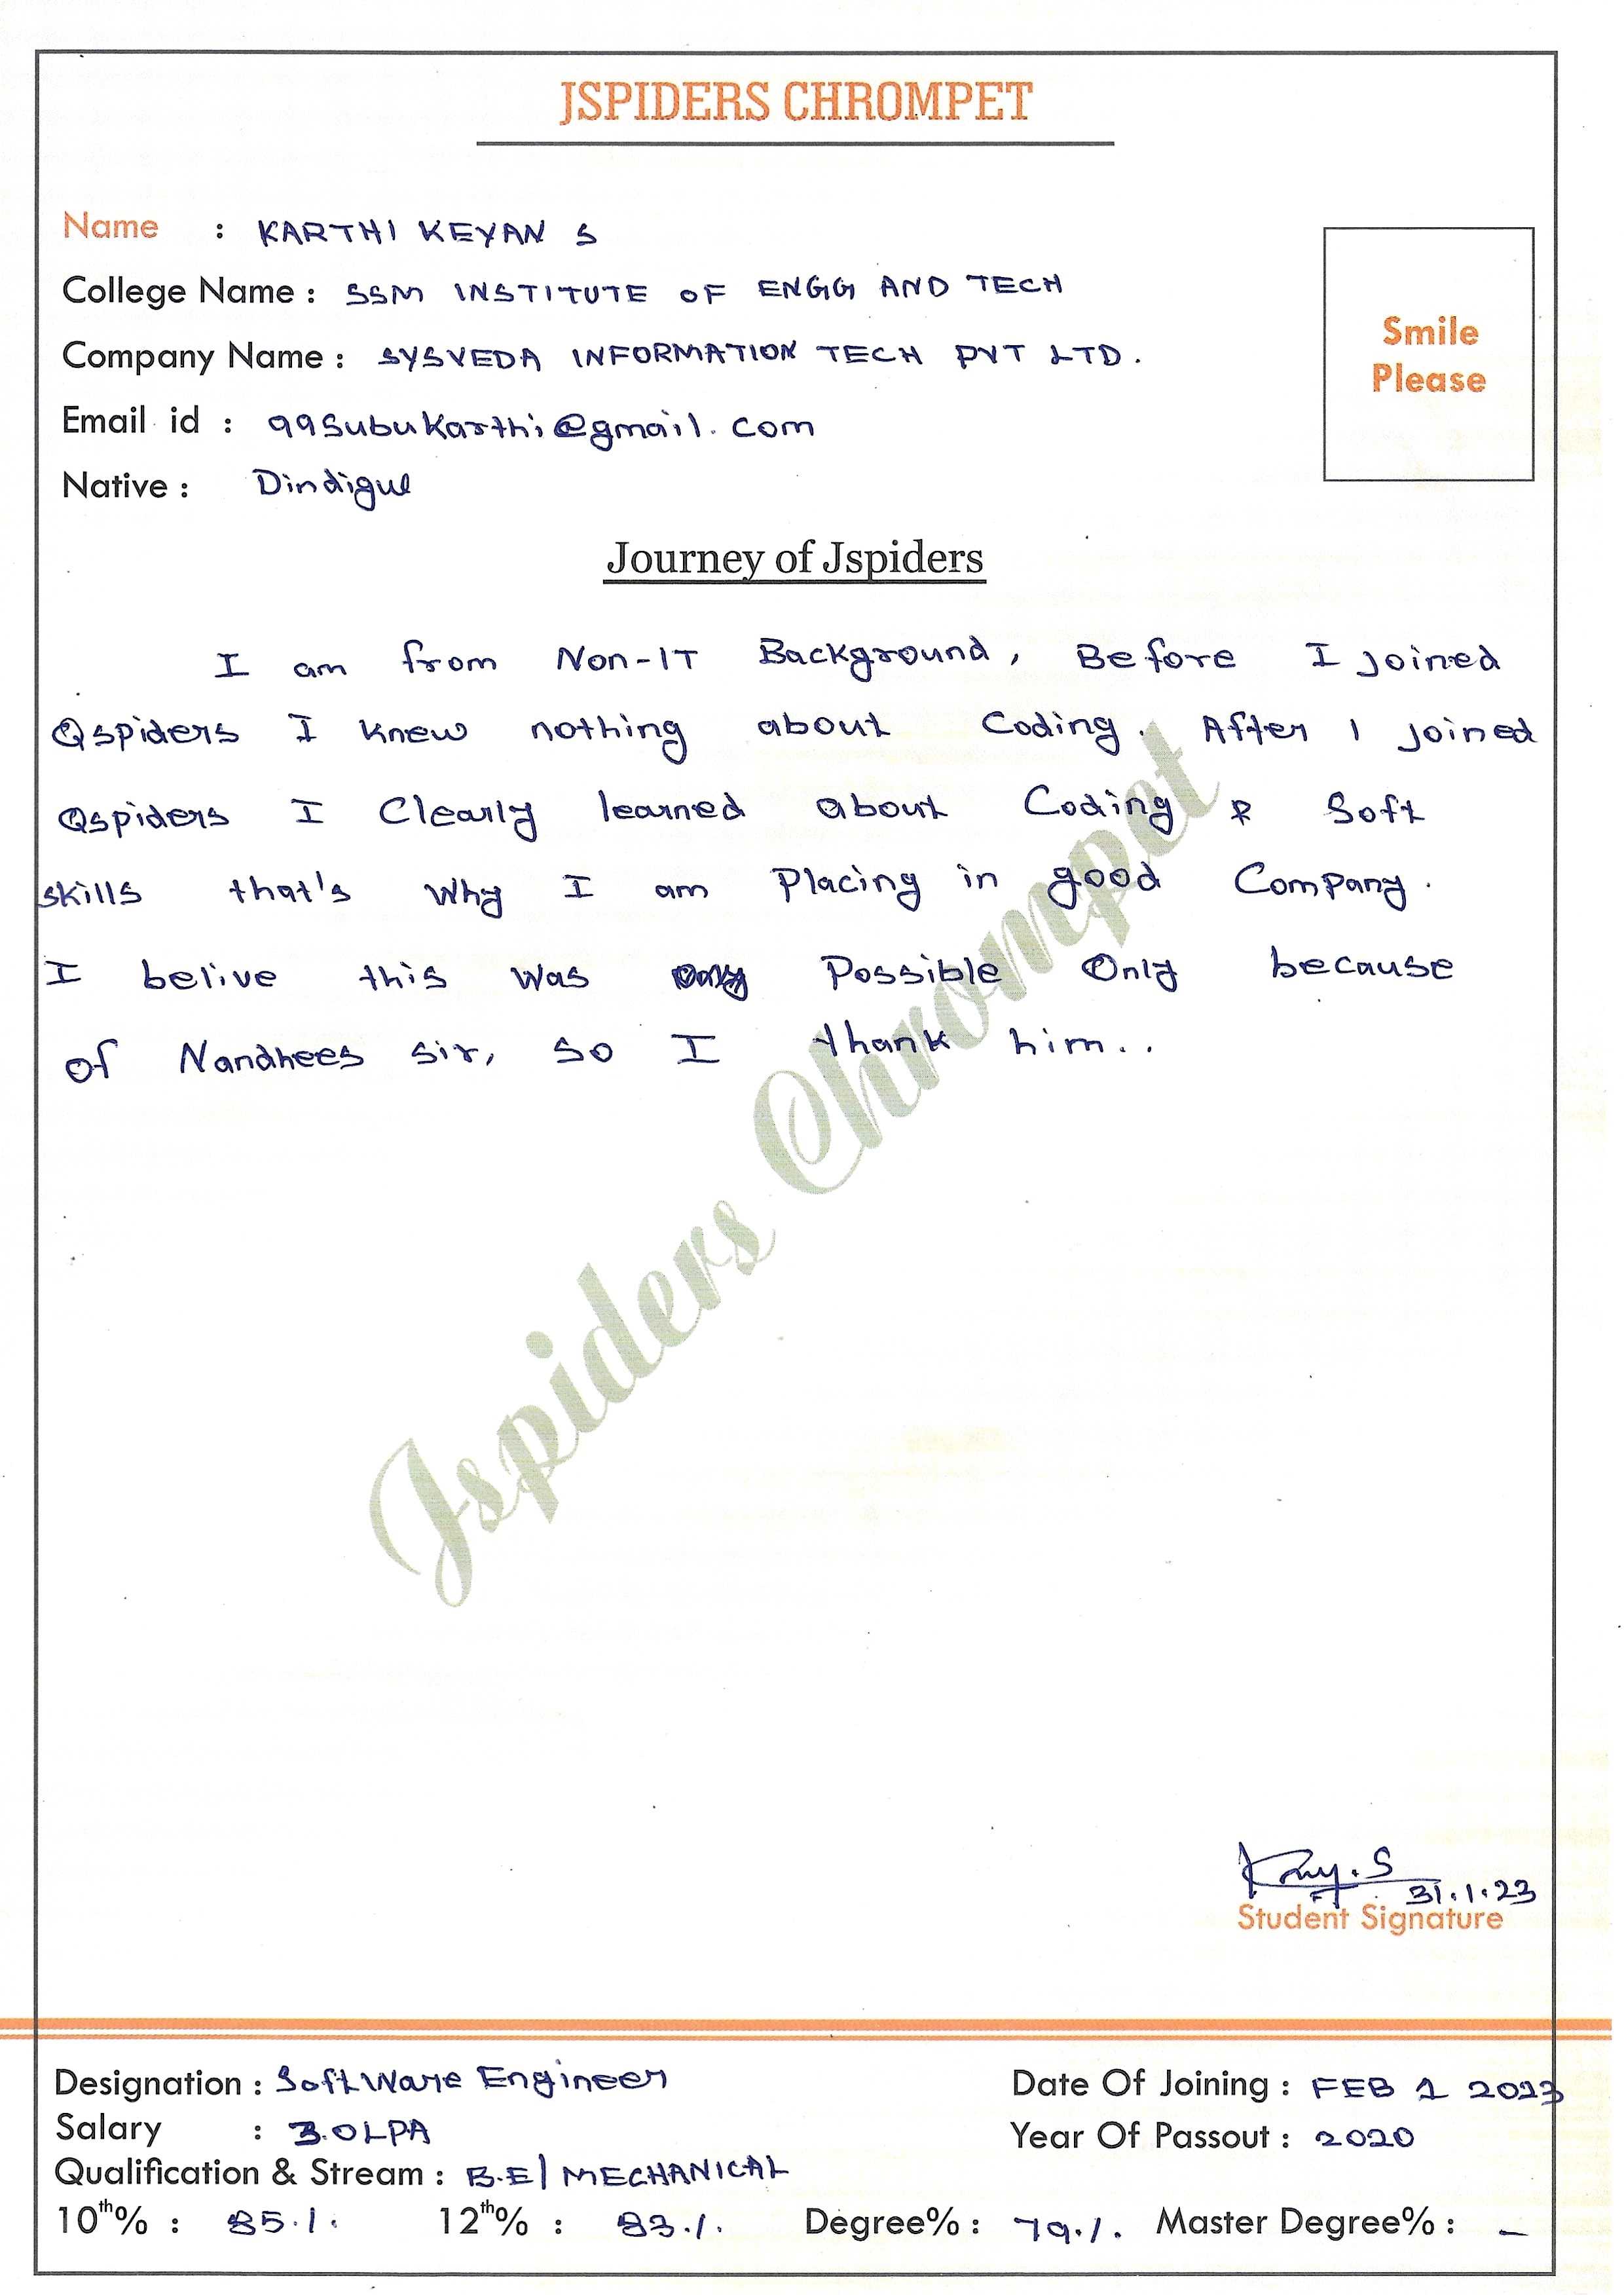 JSPIDERS CHROMPET
Name : KARTHI KEYAN S
College Name : SSM INSTITUTE OF ENGG AND TECH
Company Name : SYSVEDA INFORMATION TECH PVT LTD.
Email id : 99Subukarthi@gmail.com
Native : Dindigul
Smile
Please
Journey of Jspiders
I am from Non-IT Background, Before I joined
Qspiders I knew nothing about Coding. After I joined
Qspiders I Clearly learned about Coding & Soft
skills that's why I am Placing in good Company.
I belive this was Possible Only because
of Nandhees sir, so I thank him..
Jspiders Chrompet
31.1.23
Student Signature
Designation : Software Engineer
Date Of Joining : FEB 1 2023
Salary : 3.0LPA
Year Of Passout : 2020
Qualification & Stream : B.E | MECHANICAL
10th% : 85% 12th% : 83% Degree% : 79% Master Degree% : -